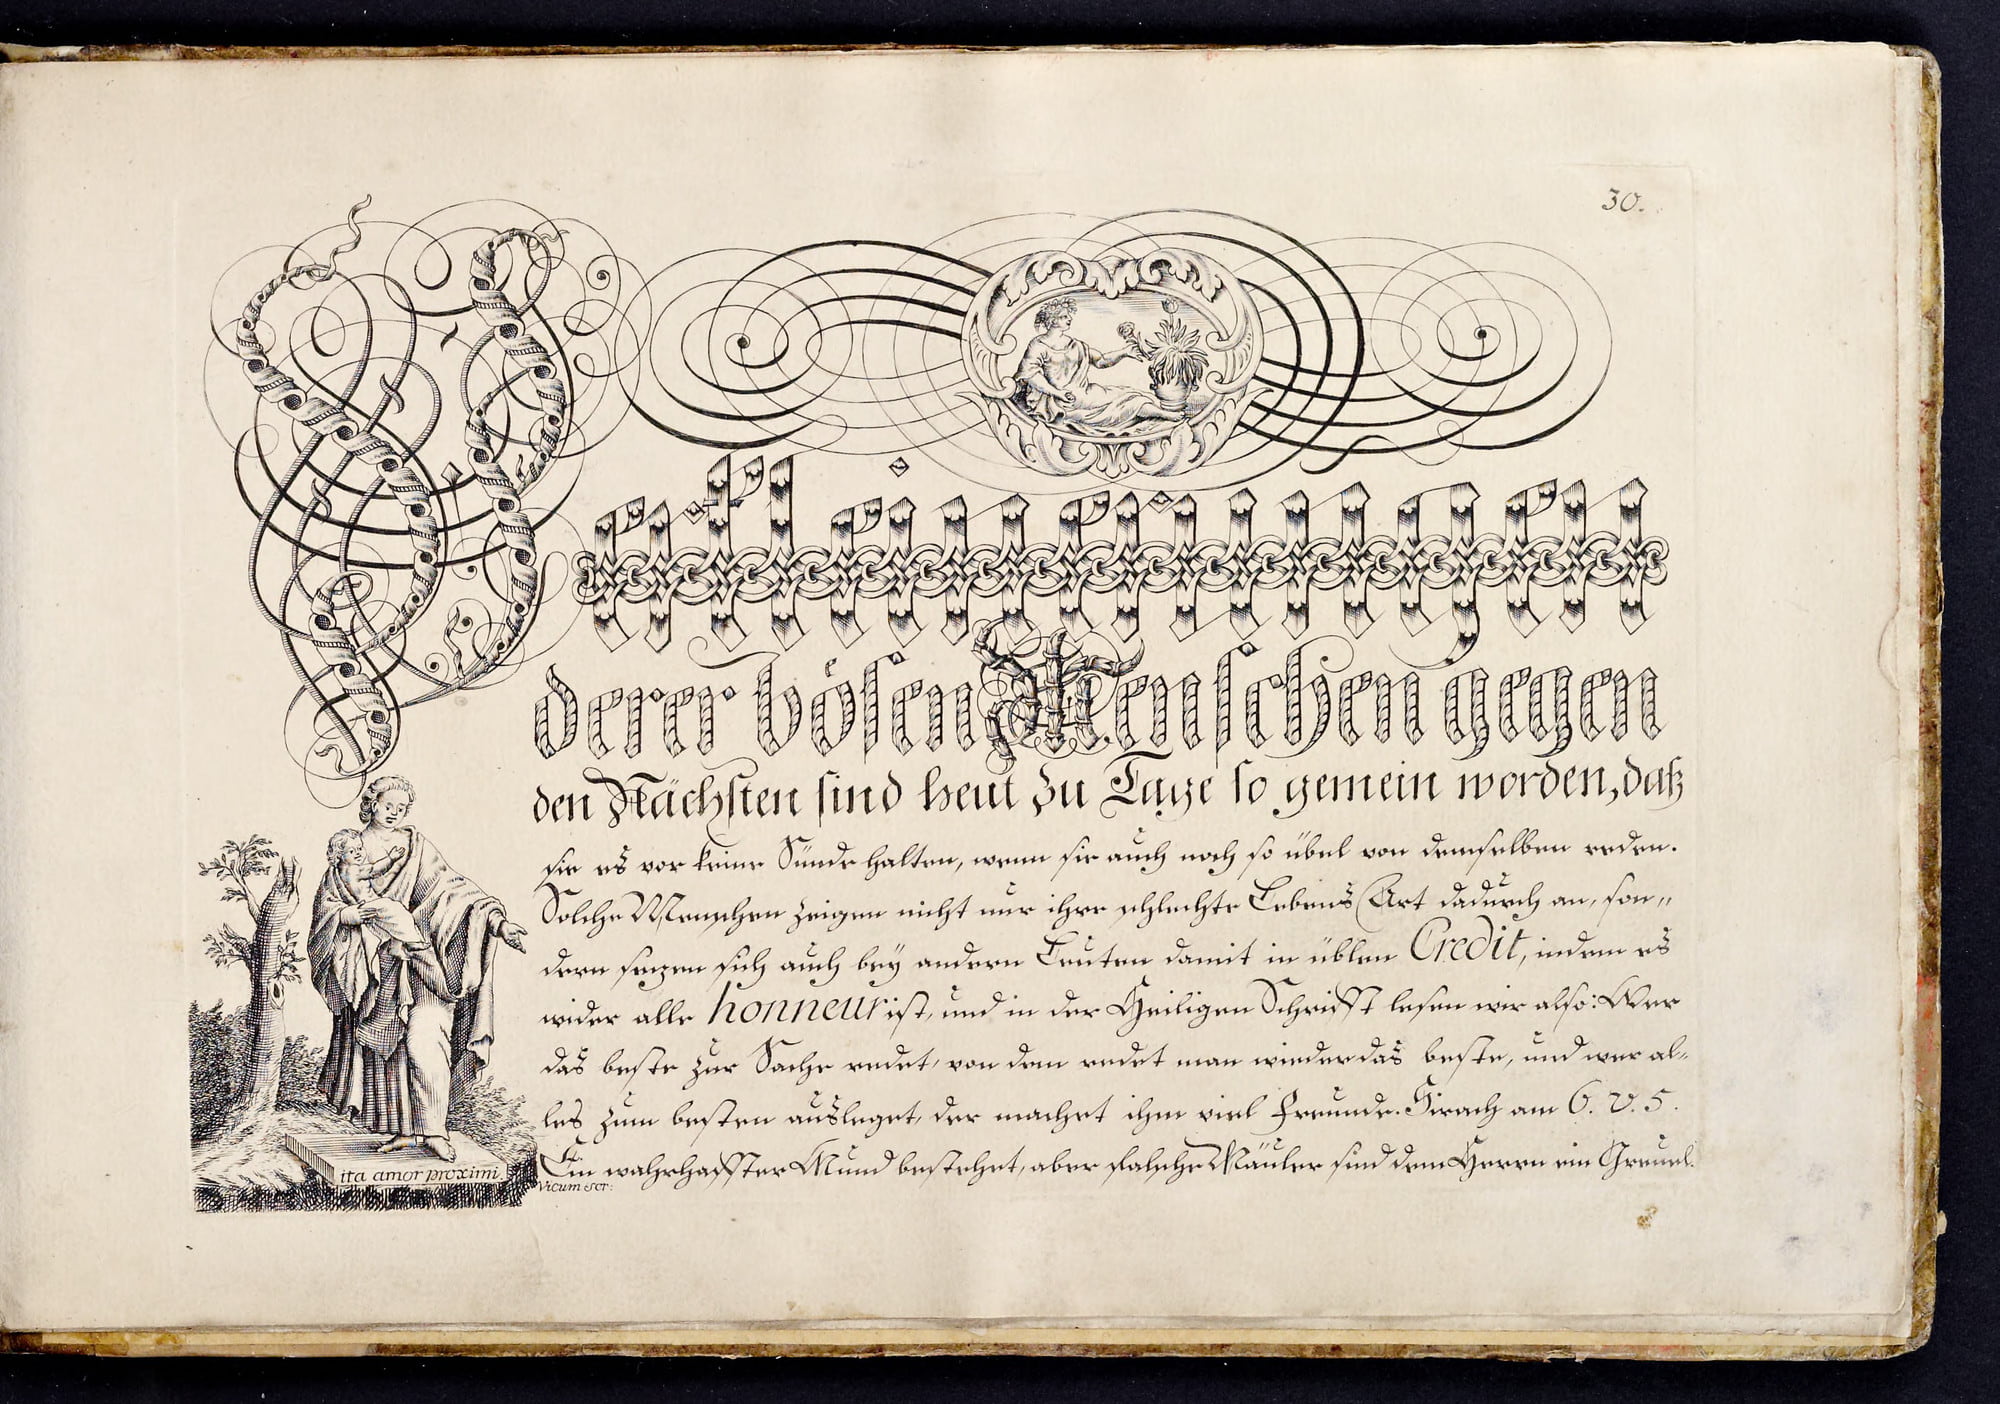 30.
Verkleinerungen
derer bösen Menschen gegen
den Nächsten sind heut zu Tage so gemein worden, daß
sie es vor keine Sünde halten, wenn sie auch noch so übel von demselben reden.
Solche Menschen zeigen nicht nur ihre schlechte Lebens Art dadurch an, son„
dern sezen sich auch bey andern Leuten damit in üblen Credit, indem es
wider alle honneur ist, und in der Heiligen Schrifft lesen wir also: Wer
das beste zur Sache redet, von dem redet man wieder das beste, und wer al„
les zum besten ausleget, der machet ihm viel Freunde. Sirach am 6. V. 5.
Ein wahrhaffter Mund bestehet, aber falsche Mäuler sind dem Herrn ein Greuel.
ita amor proximi.
Vicum scr: